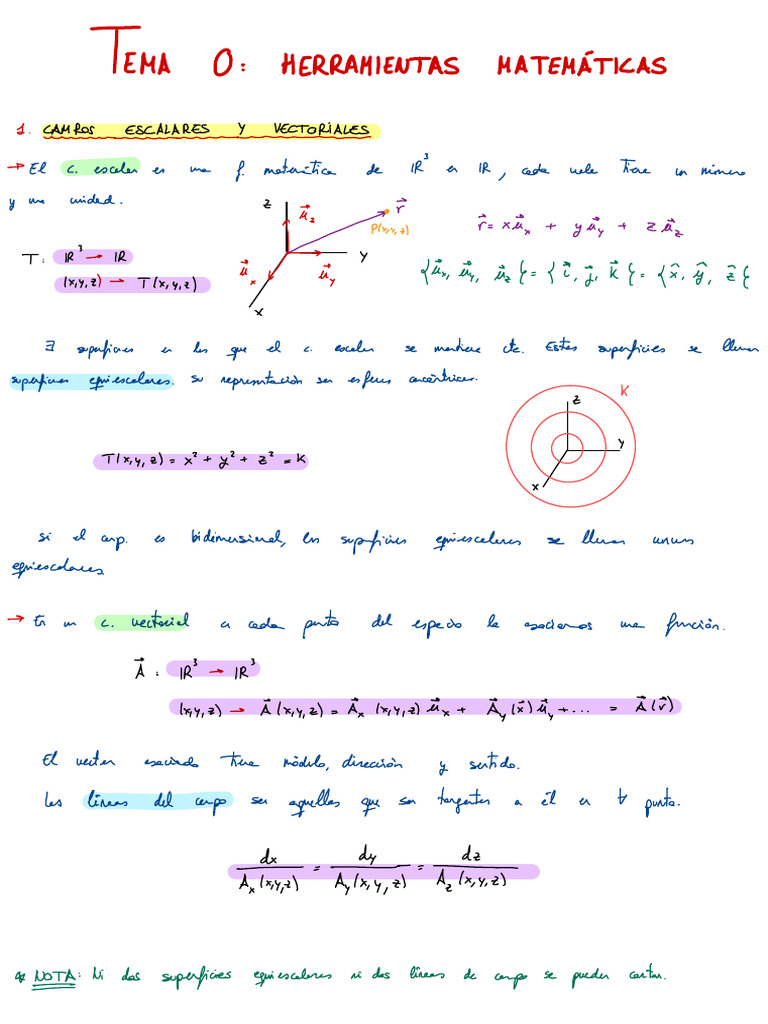 TEMA 0: HERRAMIENTAS MATEMÁTICAS
1. CAMPOS ESCALARES Y VECTORIALES
→ El c. escalar es una f. matemática de ℝ³ en ℝ, cada vale tiene un número
y una unidad.
T: ℝ³ → ℝ
(x,y,z) → T(x,y,z)
z
u⃗z
r⃗
P(x,y,z)
y
u⃗x
u⃗y
x
r⃗ = xu⃗x + yu⃗y + zu⃗z
{u⃗x, u⃗y, u⃗z} = {i⃗, j⃗, k⃗} = {x̂, ŷ, ẑ}
∃ superficies en las que el c. escalar se mantiene cte. Estas superficies se llaman
superficies equiescalares. Su representación son esferas concéntricas.
T(x,y,z) = x² + y² + z² = K
K
z
y
x
Si el camp. es bidimensional, las superficies equiescalares se llaman curvas
equiescalares.
→ En un c. vectorial a cada punto del espacio le asociamos una función.
A⃗: ℝ³ → ℝ³
(x,y,z) → A⃗(x,y,z) = A⃗x (x,y,z) u⃗x + A⃗y(x⃗) u⃗y + ... = A⃗(r⃗)
El vector asociado tiene módulo, dirección y sentido.
Las líneas del campo son aquellas que son tangentes a él en ∀ punto.
dx / Ax(x,y,z) = dy / Ay(x,y,z) = dz / Az(x,y,z)
* NOTA: Ni dos superficies equiescalares ni dos líneas de campo se pueden cortar.